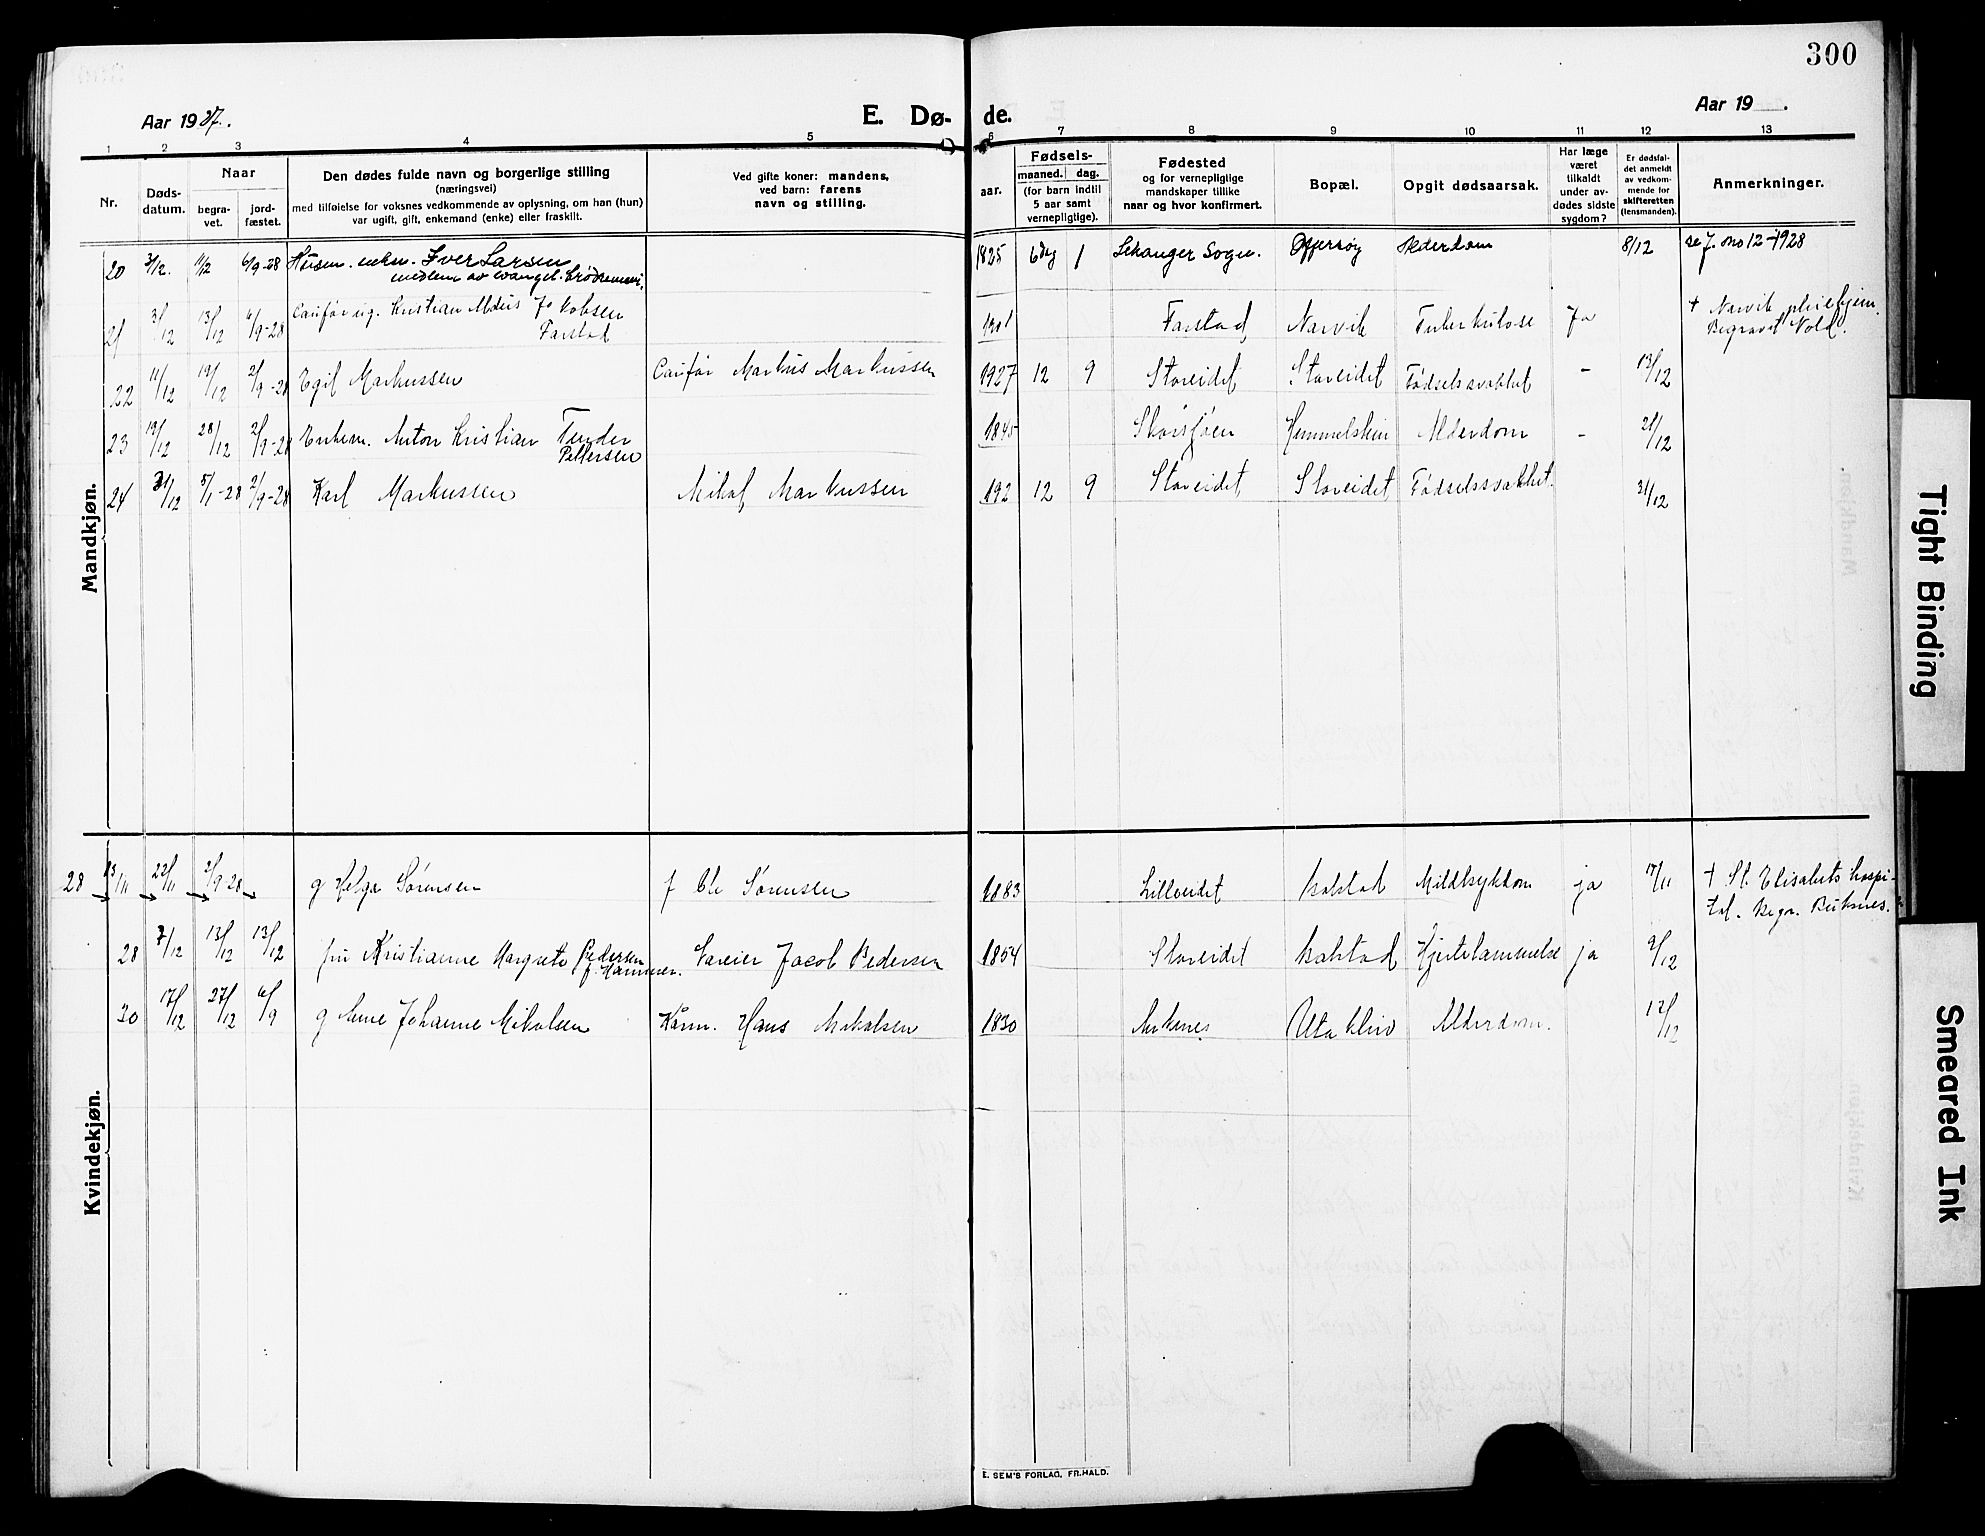 300
Aar 1927.
E. Dø-
de.
Aar 19 .
1 2 3 4 5 6 7 8 9 10 11 12 13
Nr.
Døds-
datum.
Naar
begra-
vet.
jord-
fæstet.
Den dødes fulde navn og borgerlige stilling
(næringsvei)
med tilføielse for voksnes vedkommende av oplysning, om han (hun)
var ugift, gift, enkemand (enke) eller fraskilt.
Ved gifte koner: mandens,
ved barn: farens
navn og stilling.
aar.
Fødsels-
maaned. dag.
(for barn indtil
5 aar samt
vernepligtige).
Fødested
og for vernepligtige
mandskaper tillike
naar og hvor konfirmert.
Bopæl.
Opgit dødsaarsak.
Har læge
været
tilkaldt
under av-
dødes sidste
sygdom?
Er dødsfal-
det anmeldt
av vedkom-
mende for
skifteretten
(lensmanden).
Anmerkninger.
Mandkjøn.
20 3/12. 11/12 6/9-28 Iver Larsen 1825 6 1 Sogn. Offersøy Alderdom 8/12 se J. no 12 - 1928
medlem av evangel.
21 3/12 13/12 6/9-28 ug. Kristian Jakobsen 1901 Farstad Narvik Tuberkulose Ja + Narvik pleiehjem.
Farstad Begravet Vold.
22 11/12 19/12 2/9-28 Egil Markussen Markus Markussen 1927 12 9 Storeidet Storeidet Fødselssvakhet - 13/12
23 19/12 28/12 2/9-28 Enkem. Anton Kristian Tender 1845 Hemmelstein Alderdom - 21/12
Pettersen
24 31/12 5/1-28 2/9-28 Karl Markussen Markussen 192 12 9 Storeidet Storeidet Fødselssvakhet. 31/12
Kvindekjøn.
28 13/11 22/11 2/9-28 g Helga Sørensen f Ole Sørensen 1883 Lilleeidet Kalstad ja 17/11 + St. Elisabets hospi-
tal. Begr. Buksnes.
28 7/12 13/12 13/12 fru Kristianne Margrete Pedersen Jacob Pedersen 1854 Storeidet Kalstad Hjertelammelse ja 9/12
f. Hammer.
30 17/12 27/12 6/9 g Anne Johanne Mikalsen Hans Mikalsen 1830 Utakleiv Alderdom. 12/12
E. SEM'S FORLAG, FR.HALD.
Tight Binding
Smeared Ink